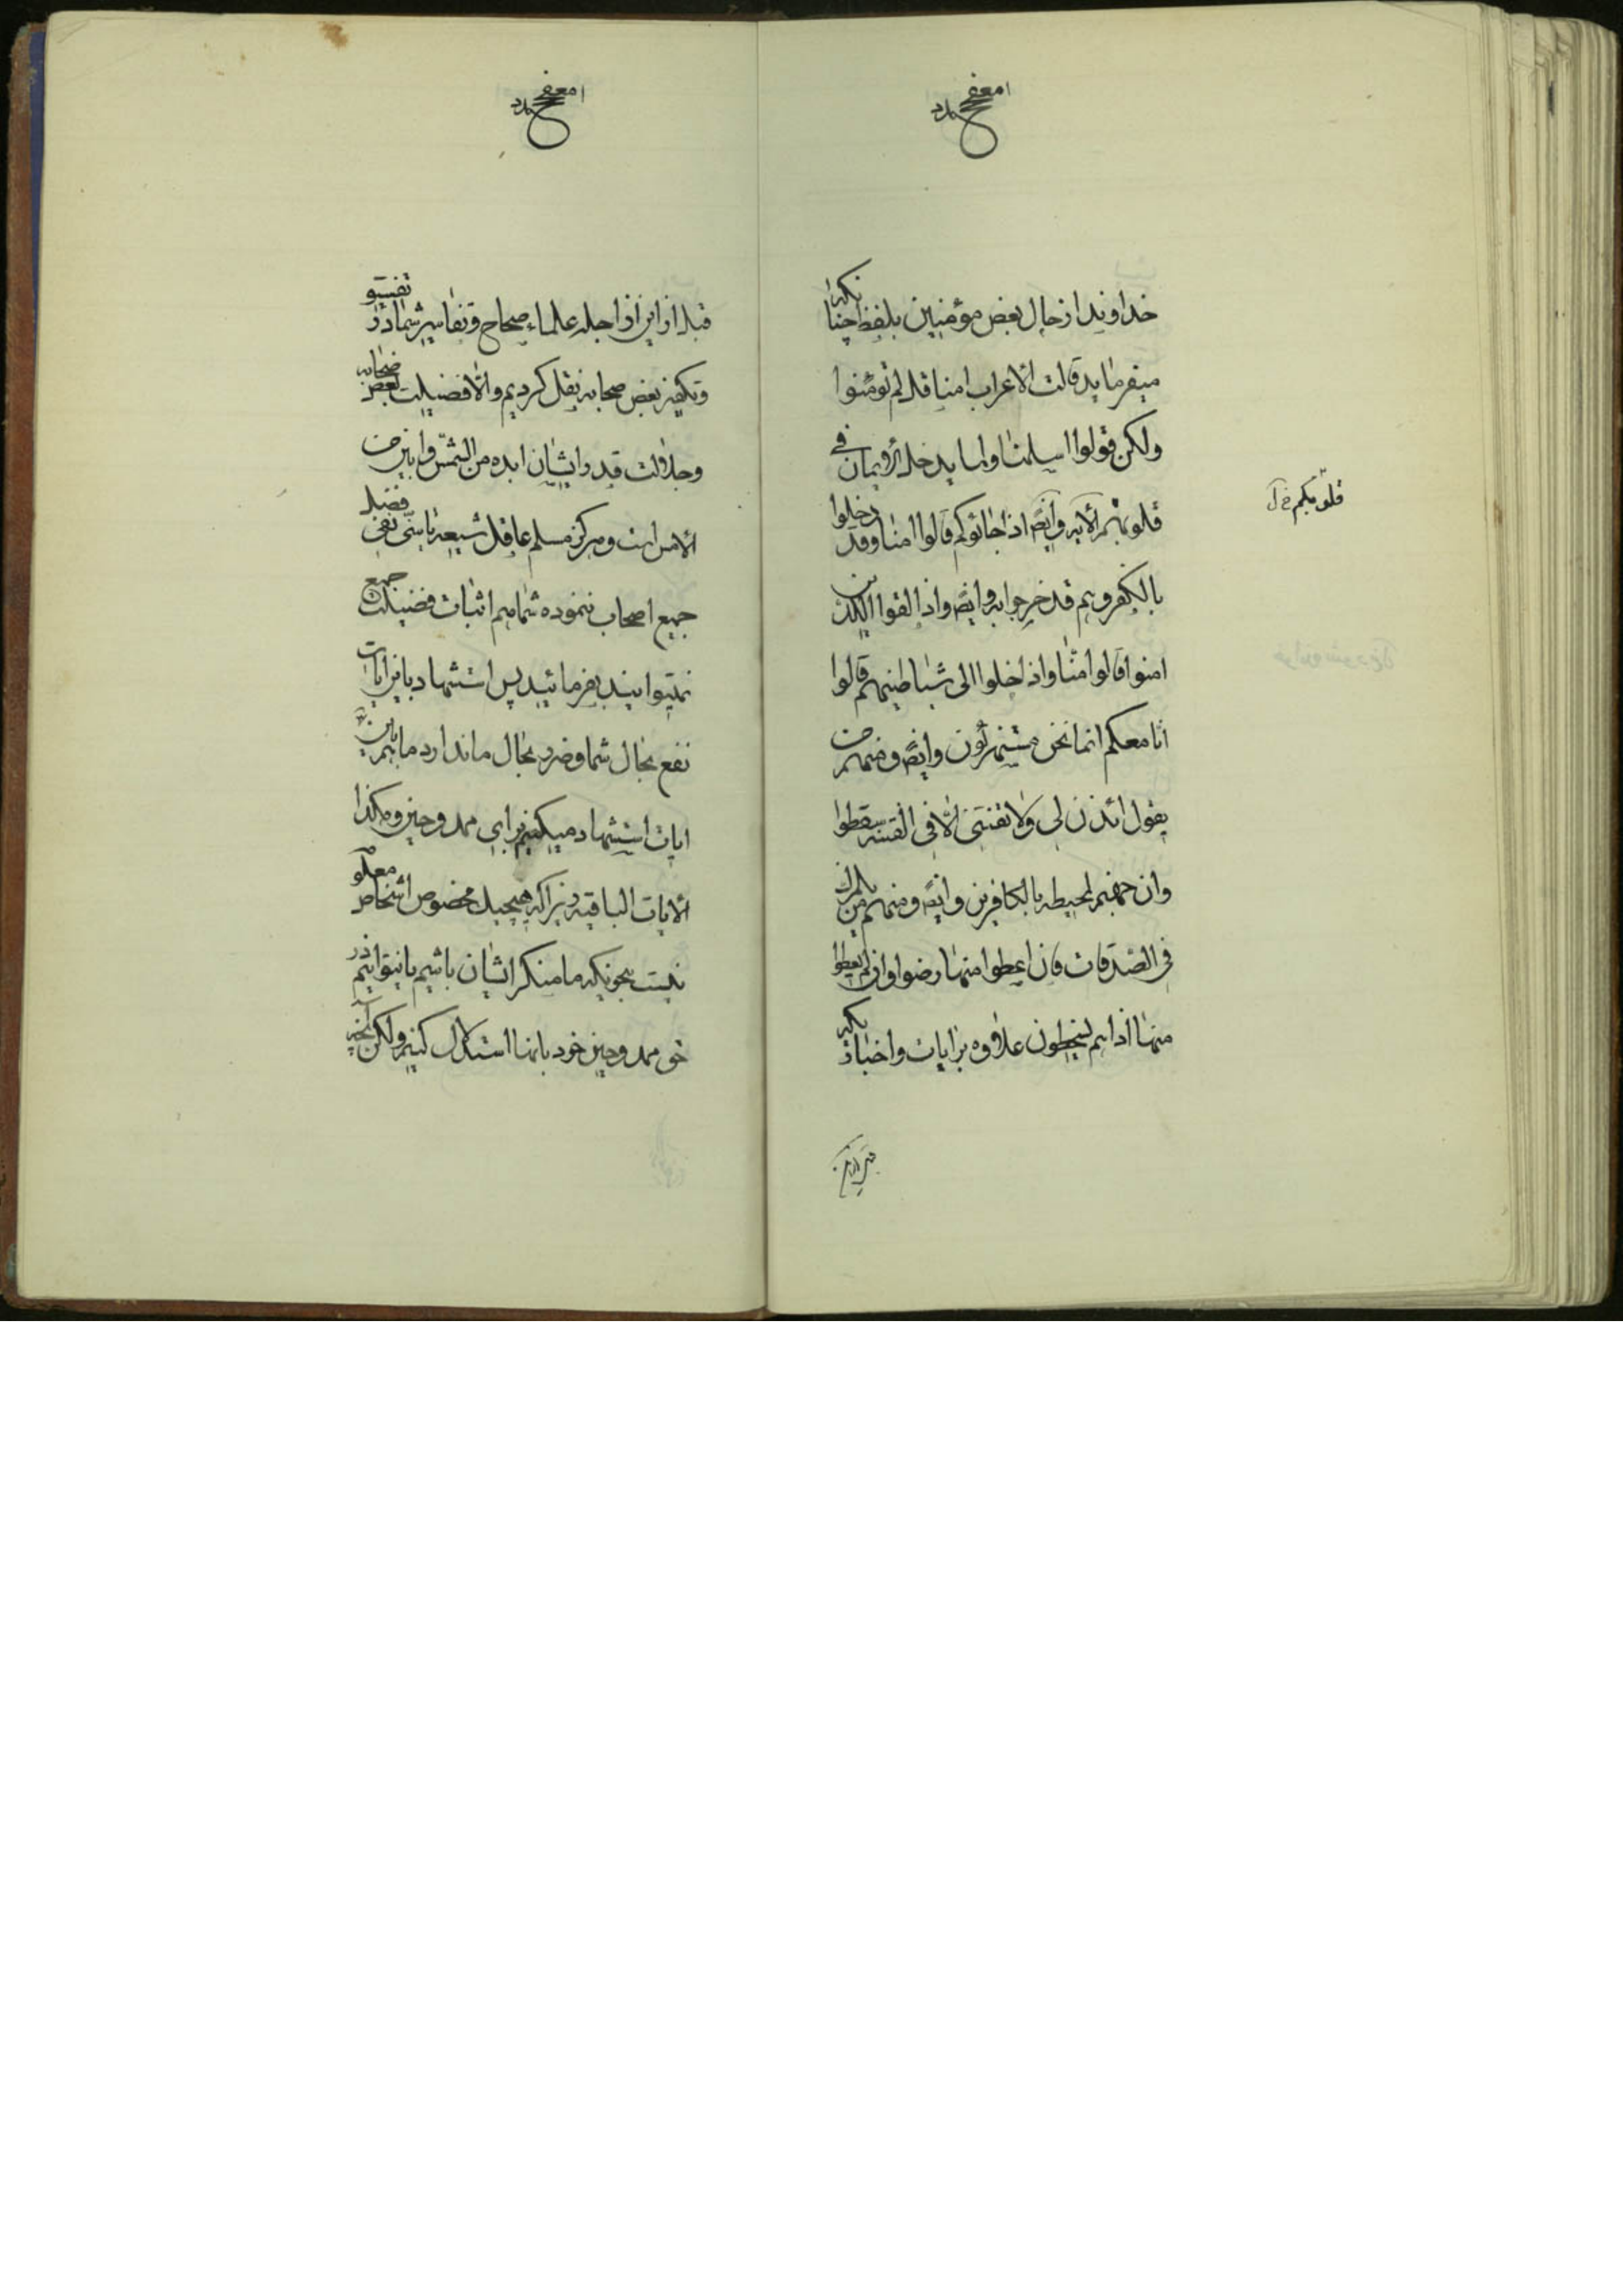 خداوند از حال بعض مؤمنین بلفظ چنانکه
میفرماید قالت الاعراب امنا قل لم تؤمنوا
ولکن قولوا اسلمنا ولما یدخل الایمان فی
قلوبهم الآیه وایضً اذا جائوکم قالوا امنا وقد دخلوا
بالکفر وهم قد خرجوا به وایضً واذا لقوا الذین
امنوا قالوا امنا واذا خلوا الی شیاطینهم قالوا
انا معکم انما نحن مستهزئون وایضً ومنهم من
یقول ائذن لی ولا تفتنی الا فی الفتنه سقطوا
وان جهنم لمحیطه بالکافرین وایضً ومنهم من یلمزک
فی الصدقات فان اعطوا منها رضوا وان لم یعطوا
منها اذا هم یسخطون علاوه بر ایات و اخبار یکه
قلوبکم خ ل
قبل از این از اجله علماء صحاح و تفاسیر شما در تفسیق
و تکفیر بعض صحابه نقل کردیم والا فضیلت بعض صحابه
و جلالت قدر ایشان ابده من الشمس و ابین من
الامس است و هرکز مسلم عاقل شیعه یا سنی نفی فضل
جمیع اصحاب ننموده شما هم اثبات فضیلت جمیع
نمیتوانید بفرمائید پس استشهاد باین ایات
نفع بحال شما و ضرر بحال ما ندارد ما هم باین
ایات استشهاد میکنیم برای ممدوحین و هکذا
الایات الباقیه زیرا که هیچیک مخصوص اشخاص معلو
نیست بجوریکه ما منکر اشان باشیم یا نتوانیم در
حق ممدوحین خود بانها استدلال کنیم ولکن آنچه